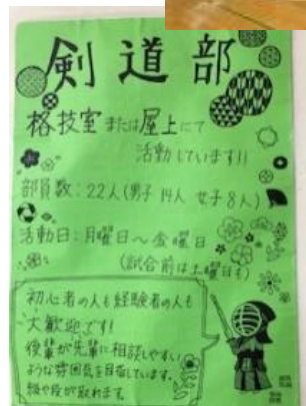 剣道部
格技室または屋上にて
活動しています!!
部員数:22人(男子14人 女子8人)
活動日:月曜日~金曜日
(試合前は土曜日も)
初心者の人も経験者の人も
大歓迎です!
後輩が先輩に相談しやすい
ような雰囲気を目指しています。
級や段が取れます。